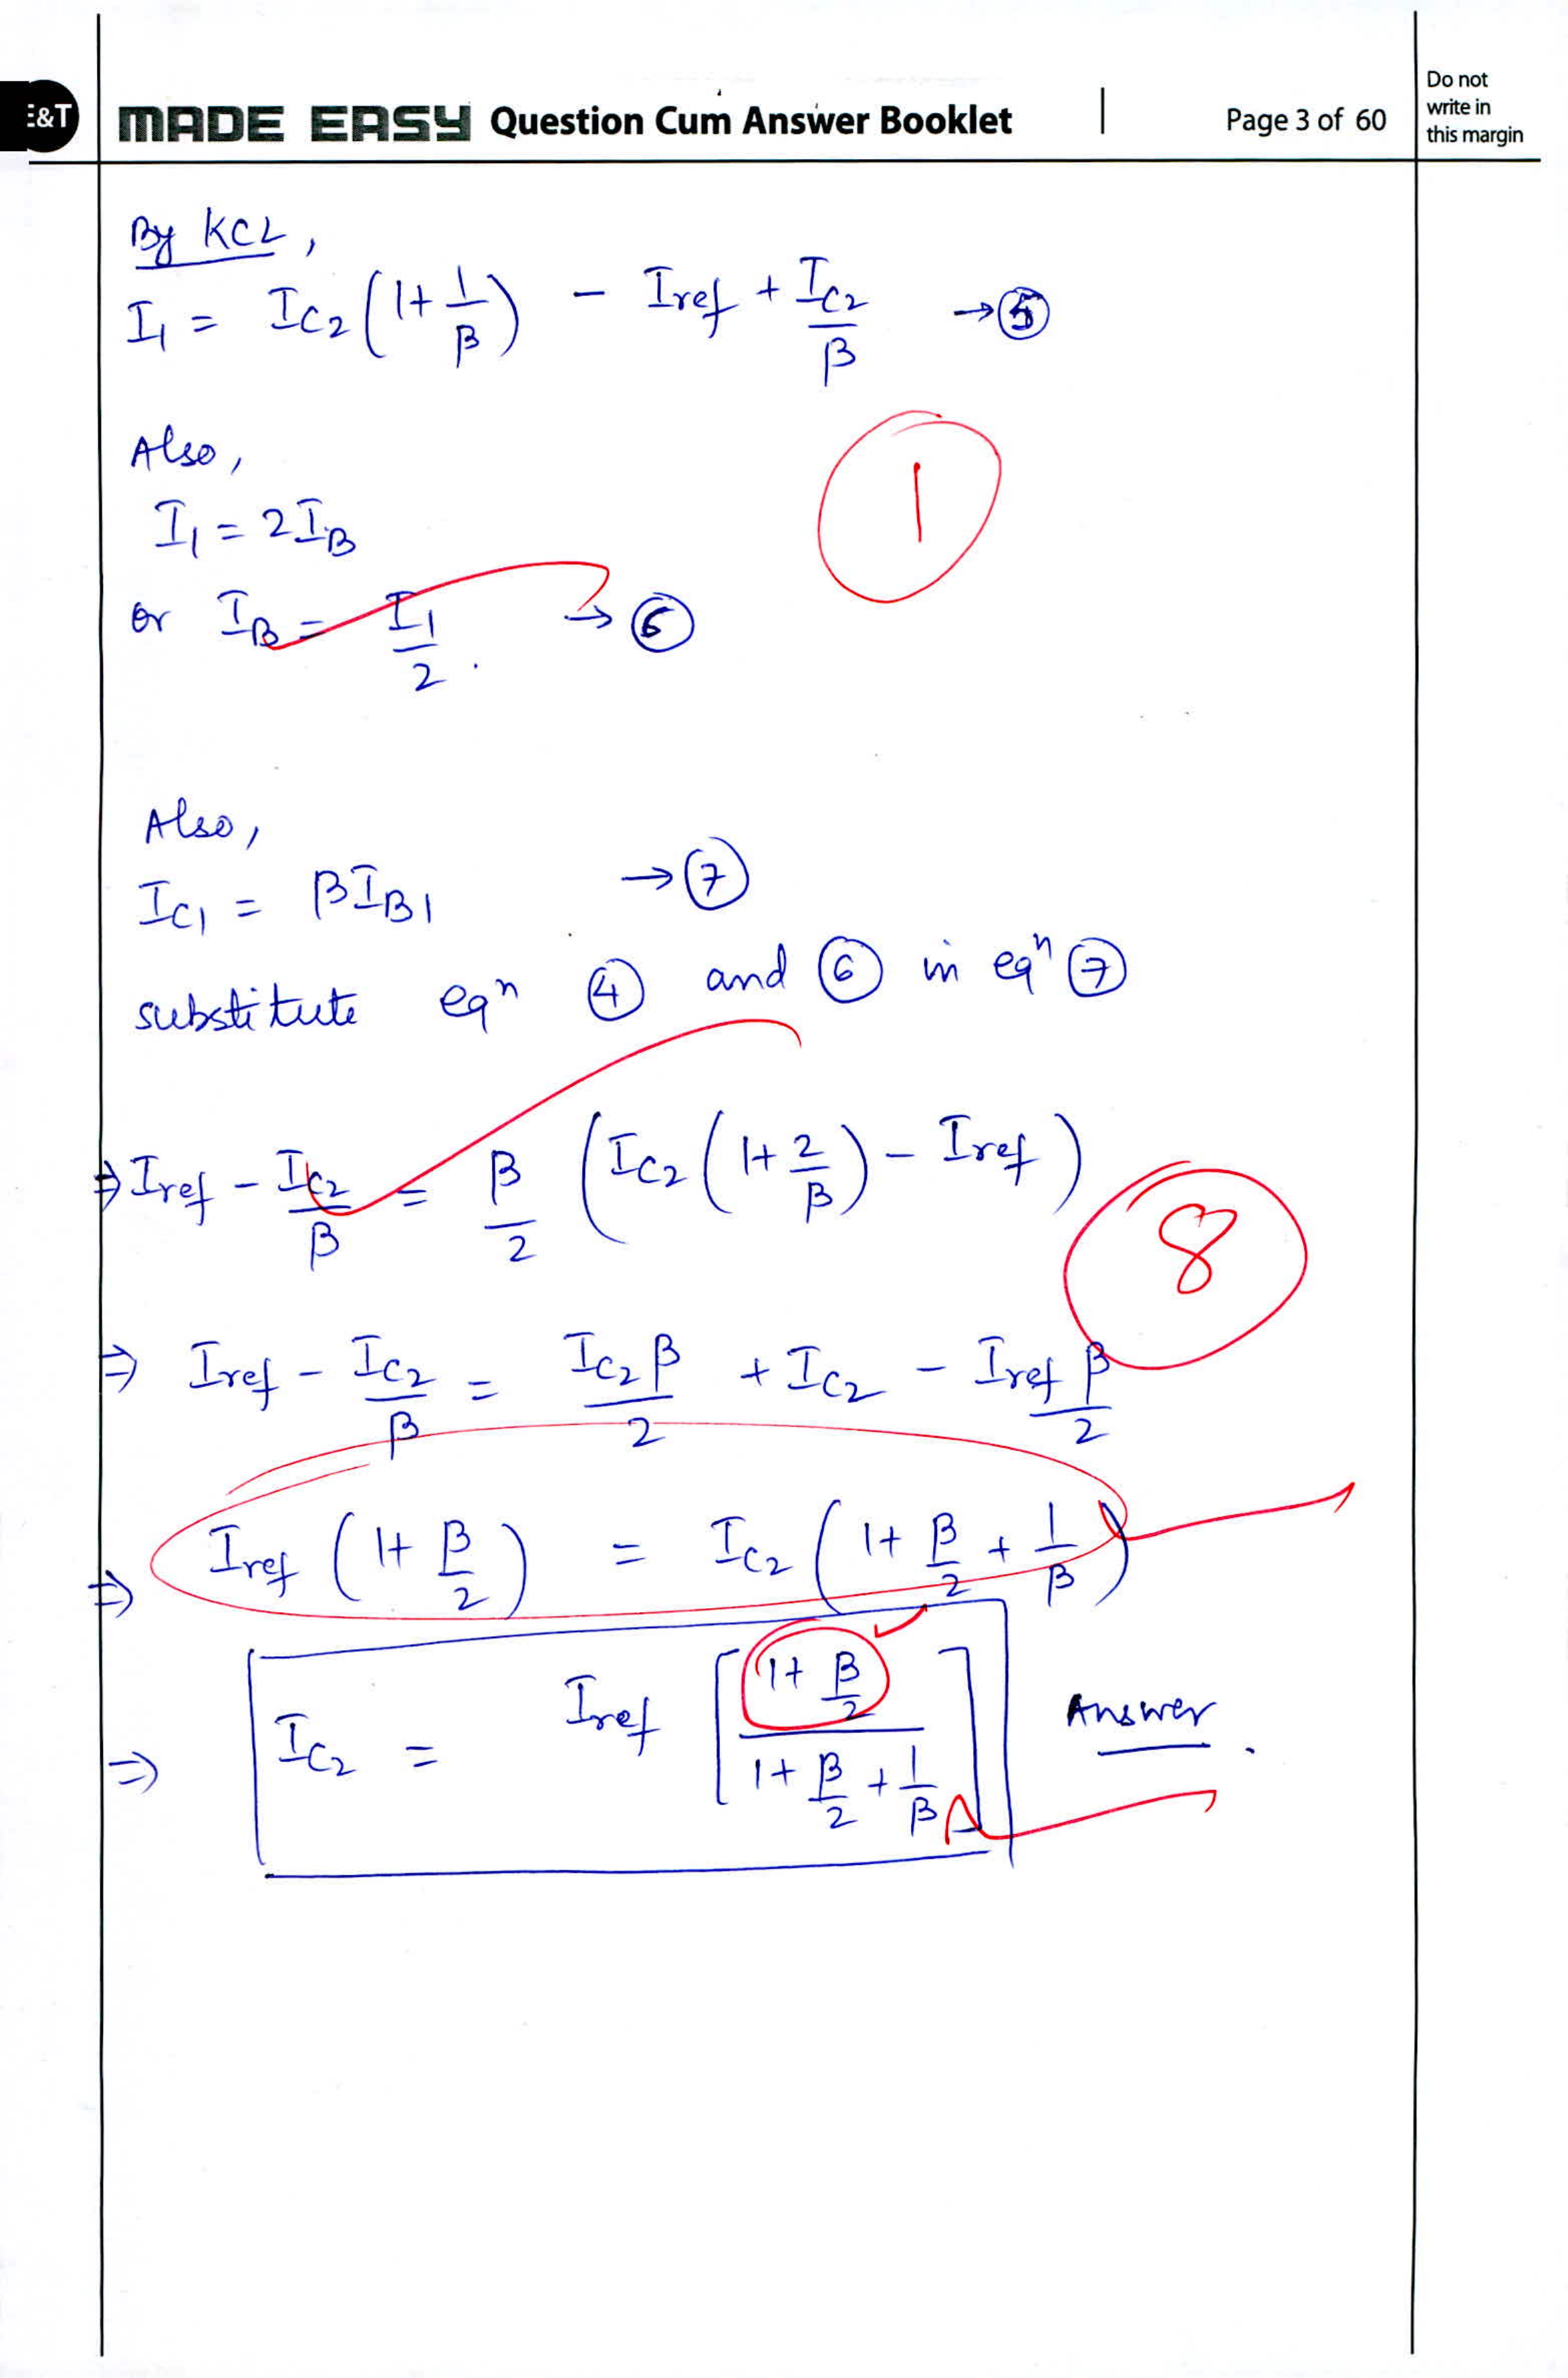 E&T MADE EASY Question Cum Answer Booklet | Page 3 of 60
Do not
write in
this margin
By KCL,
I1 = IC2(1+1/β) - Iref + IC2/β → ⑤
Also,
1
I1 = 2IB
or IB = I1/2. → ⑥
Also,
IC1 = βIB1 → ⑦
substitute eqn ④ and ⑥ in eqn ⑦
⇒ Iref - IC2/β = β/2 (IC2(1+2/β) - Iref)
8
⇒ Iref - IC2/β = IC2β/2 + IC2 - Iref β/2
⇒ Iref (1+β/2) = IC2 (1+β/2+1/β)
⇒ IC2 = Iref [(1+β/2)/(1+β/2+1/β)] Answer.